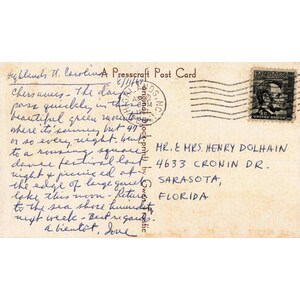 Highlands N. Carolina
8/11/67
A Presscraft Post Card
Chers amis - The days
pass quickly in these
beautiful green mountains
where it's sunny but 49°
or so every night. Went
to a rousing square
dance festival last
night & picnicked at
the edge of large quiet
lake this noon - Return
to the sea shore
next week - Best regards
a bientôt,
MR. & MRS. HENRY DOLHAIN
4633 CRONIN DR.
SARASOTA,
FLORIDA